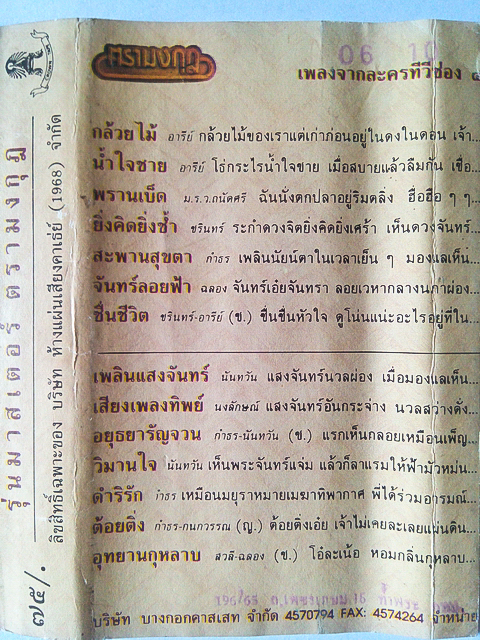 ตรามงกุฎ
06 10
เพลงจากละครทีวีช่อง ๔
กล้วยไม้ อารีย์ กล้วยไม้ของเราแต่เก่าก่อนอยู่ในดงในดอน เจ้า...
น้ำใจชาย อารีย์ โธ่กระไรน้ำใจชาย เมื่อสบายแล้วลืมกัน เชื่อ...
พรานเบ็ด ม.ร.ว.ถนัดศรี ฉันนั่งตกปลาอยู่ริมตลิ่ง ฮือฮือ ๆ ๆ...
ยิ่งคิดยิ่งช้ำ ชรินทร์ ระกำดวงจิตยิ่งคิดยิ่งเศร้า เห็นดวงจันทร์...
สะพานสุขตา กำธร เพลินนัยน์ตาในเวลาเย็น ๆ มองแลเห็น...
จันทร์ลอยฟ้า ฉลอง จันทร์เอ๋ยจันทรา ลอยเวหากลางนภาผ่อง...
ชื่นชีวิต ชรินทร์-อารีย์ (ช.) ชื่นชื่นหัวใจ ดูโน่นแน่ะอะไรอยู่ที่ใน...
เพลินแสงจันทร์ นันทวัน แสงจันทร์นวลผ่อง เมื่อมองแลเห็น...
เสียงเพลงทิพย์ นงลักษณ์ แสงจันทร์อันกระจ่าง นวลสว่างดั่ง...
อยุธยารัญจวน กำธร-นันทวัน (ช.) แรกเห็นกลอยเหมือนเพ็ญ...
วิมานใจ นันทวัน เห็นพระจันทร์แจ่ม แล้วก็ลาแรมให้ฟ้ามัวหม่น...
ดำริรัก กำธร เหมือนมยุราหมายเมฆาทิพากาศ พี่ได้ร่วมอารมณ์...
ต้อยติ่ง กำธร-กนกวรรณ (ญ.) ต้อยติ่งเอ๋ย เจ้าไม่เคยละเลยแผ่นดิน...
อุทยานกุหลาบ สวลี-ฉลอง (ช.) โอ๋ละเน้อ หอมกลิ่นกุหลาบ...
บริษัท บางกอกคาสเสท จำกัด 4570794 FAX: 4574264 จำหน่าย
รุ่นมาสเตอร์ ตรามงกุฎ
ลิขสิทธิ์เฉพาะของ บริษัท ห้างแผ่นเสียงคาเธ่ย์ (1968) จำกัด
๗๕/.